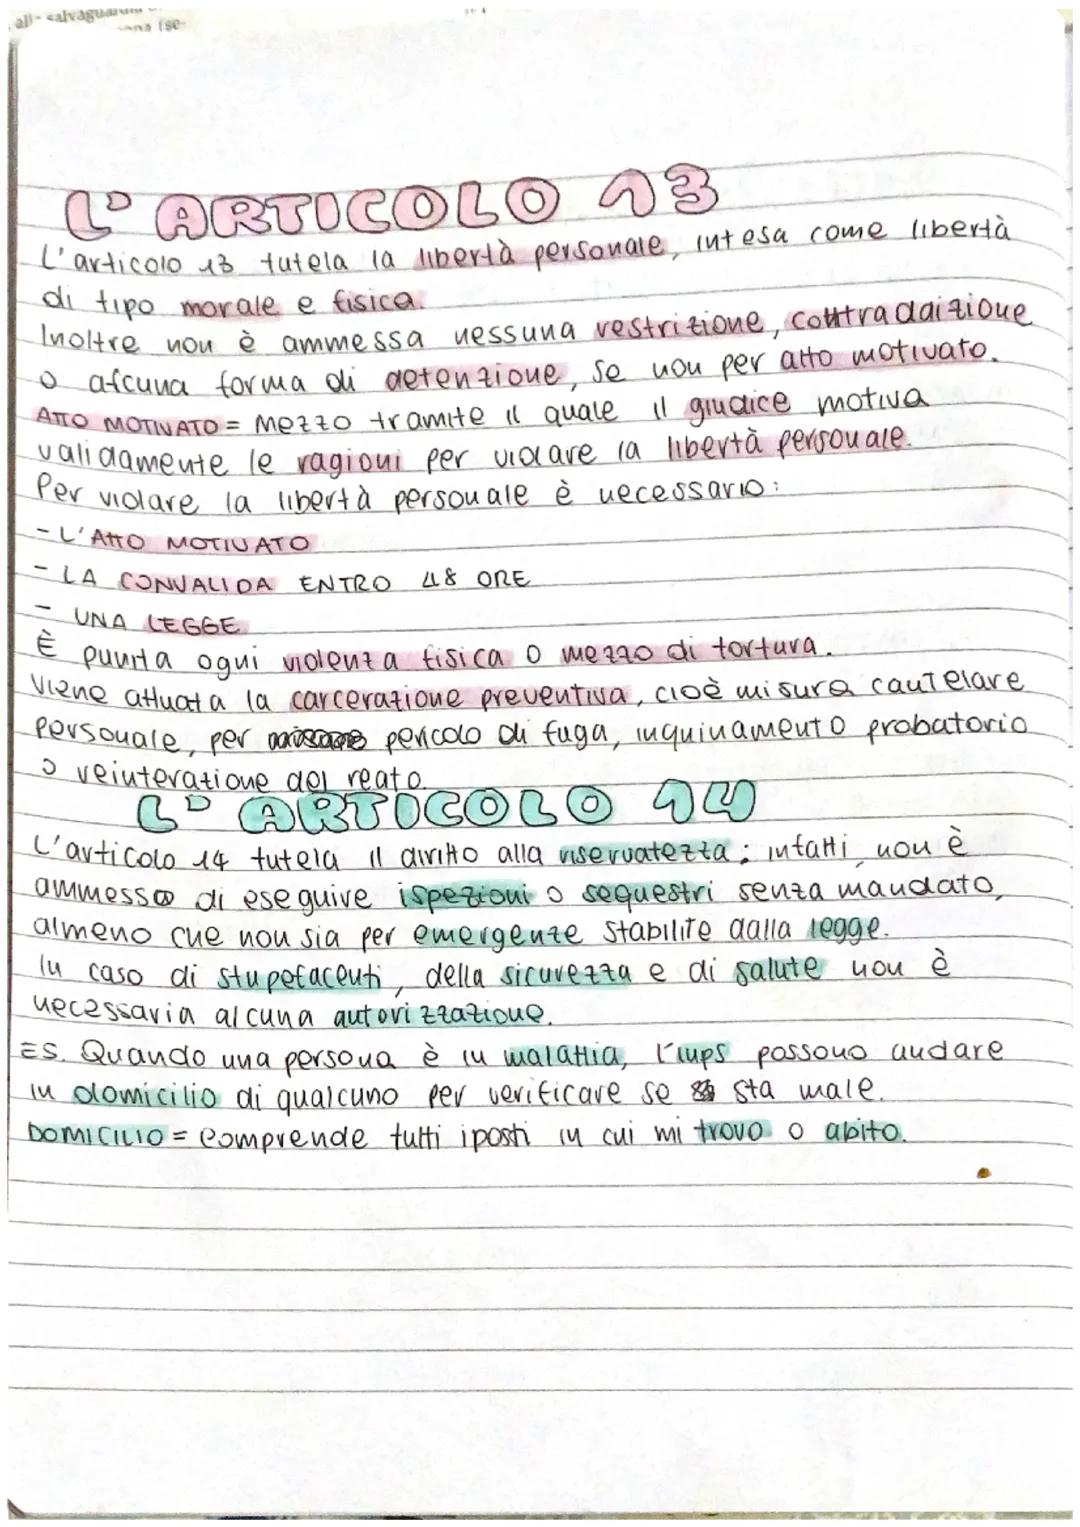 all- salvaguardia
L'ARTICOLO 13
L'articolo 13 tutela la libertà personale, intesa come libertà
di tipo morale e fisica.
Inoltre non è ammessa nessuna restrizione, conttraddizione
o alcuna forma di detenzione, se non per atto motivato.
ATTO MOTIVATO = Mezzo tramite il quale il giudice motiva
validamente le ragioni per violare la libertà personale.
Per violare la libertà personale è necessario:
- L'ATTO MOTIVATO
- LA CONVALIDA ENTRO 48 ORE
- UNA LEGGE
È punita ogni violenza fisica o mezzo di tortura.
Viene attuata la carcerazione preventiva, cioè misura cautelare
personale, per pericolo di fuga, inquinamento probatorio
o reinterazione del reato.
L'ARTICOLO 14
L'articolo 14 tutela il diritto alla riservatezza; infatti, non è
ammesso di eseguire ispezioni o sequestri senza mandato,
almeno che non sia per emergenze stabilite dalla legge.
In caso di stupefacenti, della sicurezza e di salute non è
necessaria alcuna autorizzazione.
ES. Quando una persona è in malattia, l'inps possono andare
in domicilio di qualcuno per verificare se sta male.
DOMICILIO = Comprende tutti i posti in cui mi trovo o abito.